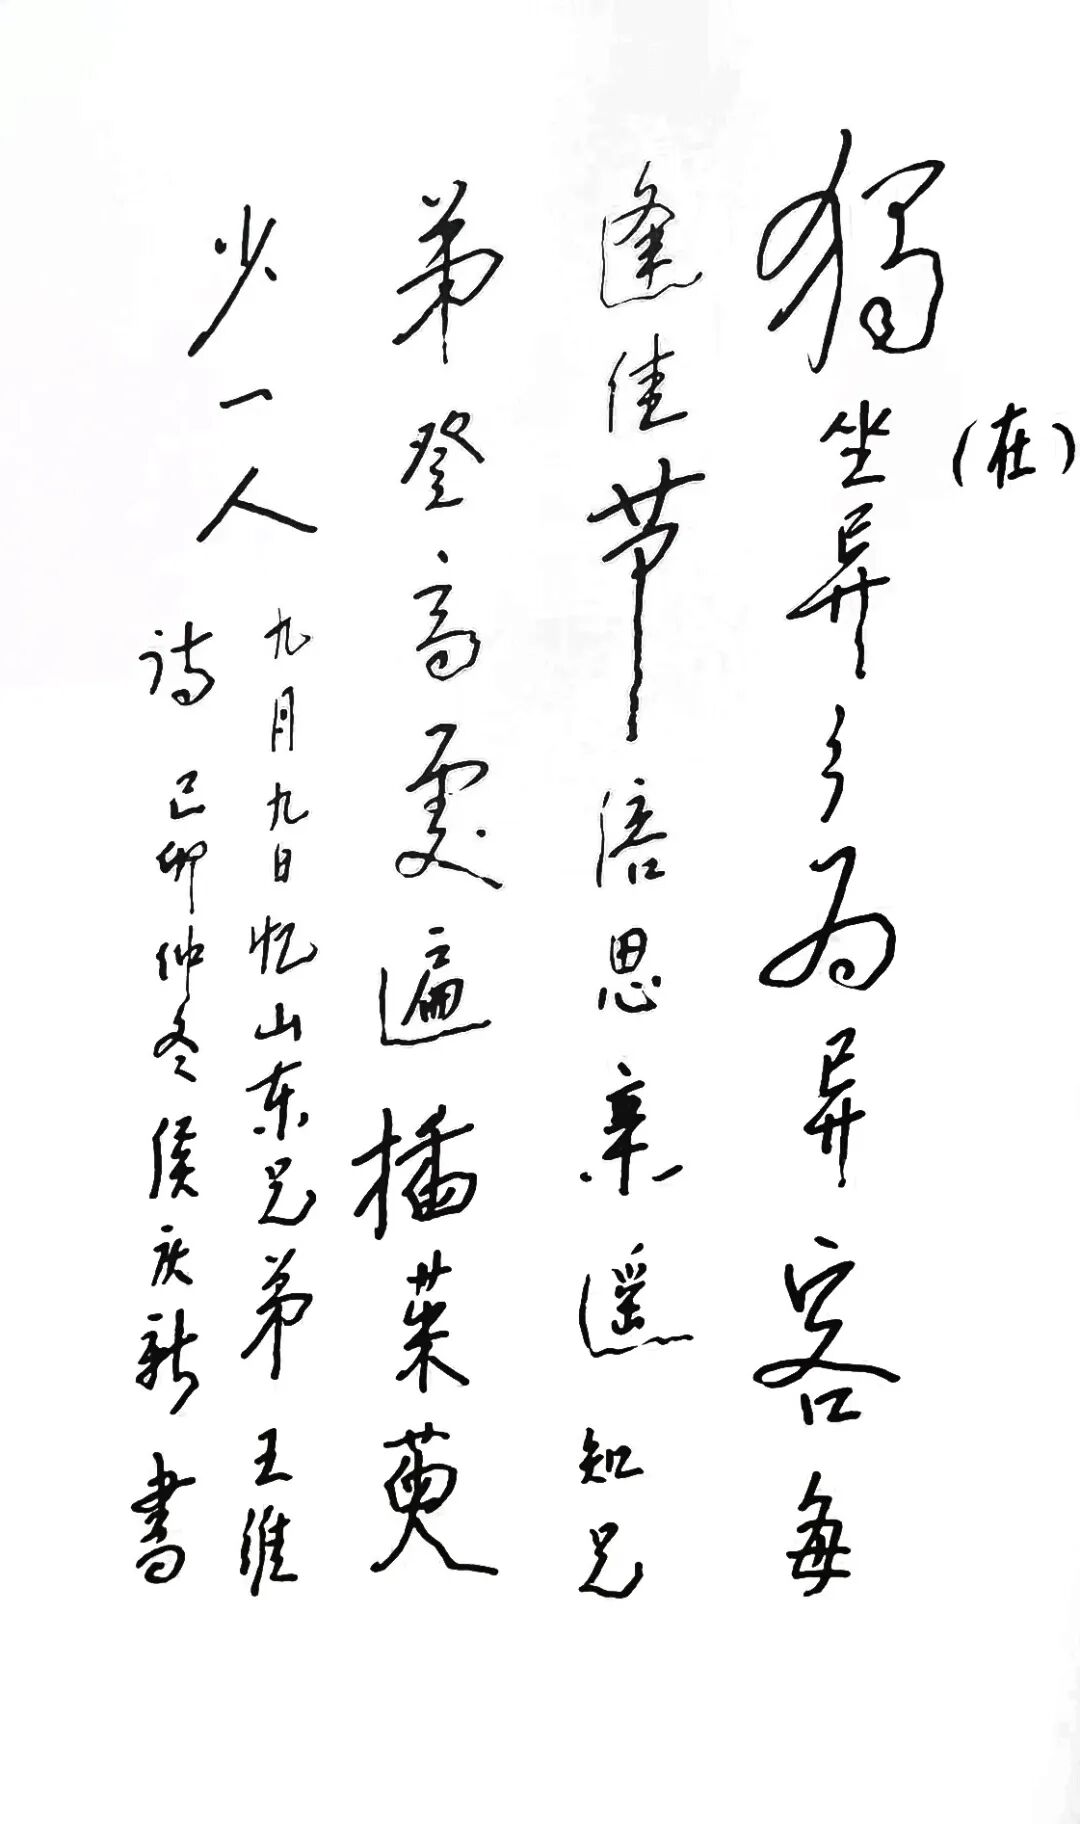 (在)
獨坐异乡为异客每
逢佳节倍思亲遥知兄
弟登高處遍插茱萸
少一人
九月九日忆山东兄弟 王维
诗 己卯仲冬侯庆新書